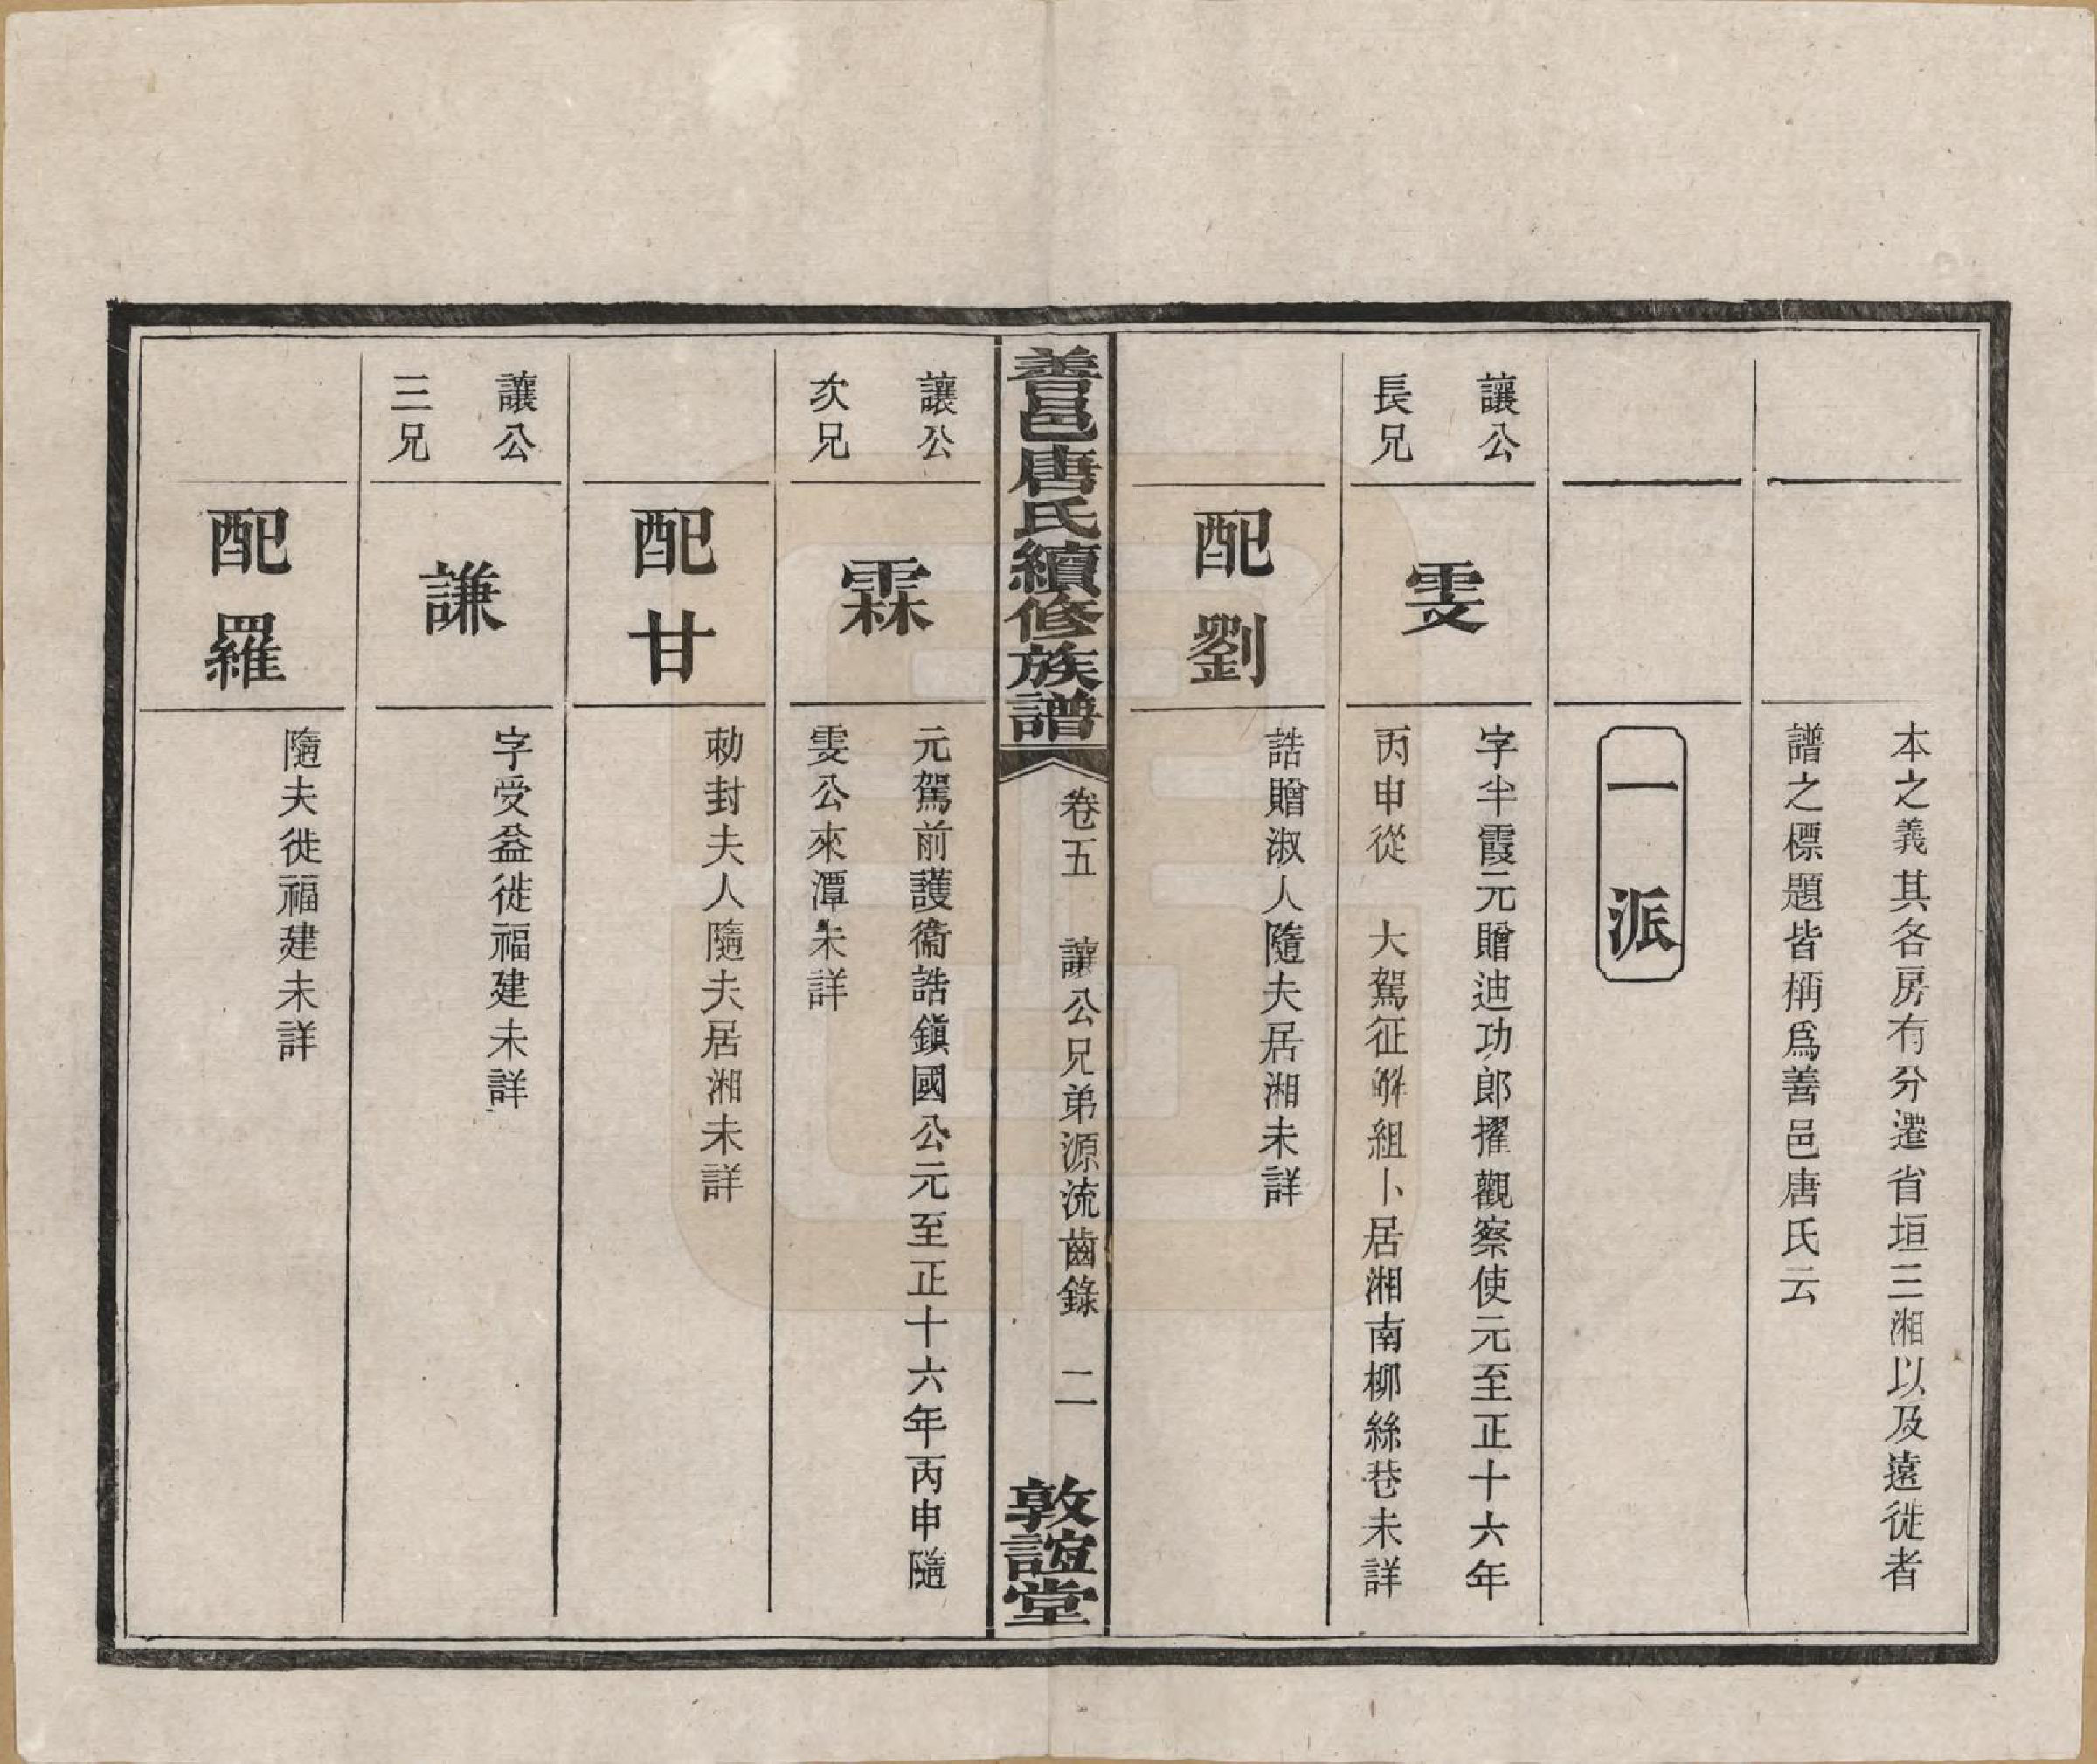 本之義其各房有分遷省垣三湘以及遠徙者
譜之標題皆稱爲善邑唐氏云
一派
讓公
長兄
雯
字半霞元贈迪功郎擢觀察使元至正十六年
丙申從 大駕征解組卜居湘南柳絲巷未詳
配劉
誥贈淑人隨夫居湘未詳
善邑唐氏續修族譜
卷五 讓公兄弟源流齒錄 二
敦誼堂
讓公
次兄
霖
元駕前護衞誥鎭國公元至正十六年丙申隨
雯公來潭未詳
配甘
勅封夫人隨夫居湘未詳
讓公
三兄
謙
字受益徙福建未詳
配羅
隨夫徙福建未詳